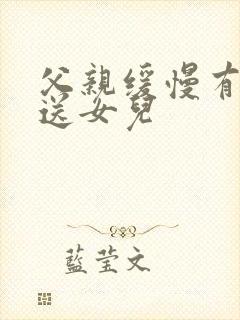 父親緩慢有
送女兒
藍莹文